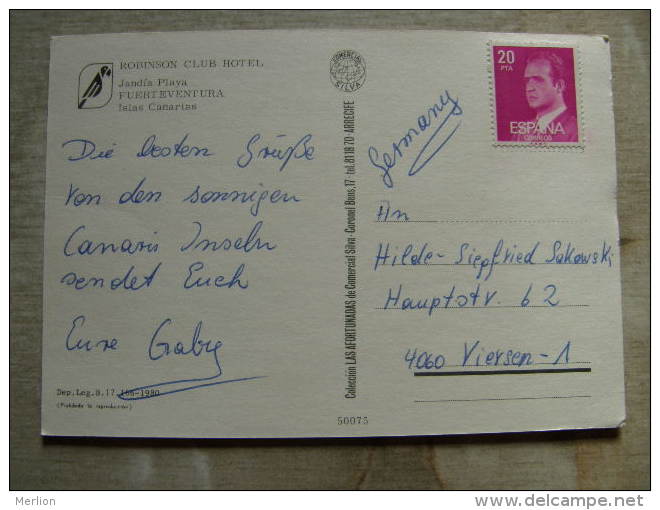 ROBINSON CLUB HOTEL
Jandía Playa
FUERTEVENTURA
Islas Canarias
COMERCIAL
SILVA
20
PTA
ESPAÑA
CORREOS
Germany
Die besten Grüße
von den sonnigen
Canaris Inseln
sendet Euch
Eure Gaby
An
Hilde-Siegfried Sakowski
Hauptstr. 62
4060 Viersen-1
Colección LAS AFORTUNADAS de Comercial Silva - Coronel Bens, 17 - tel. 81 18 70 - ARRECIFE
Dep. Leg. B. 17.166-1980
(Prohibida la reproducción)
50075
Merlion
http://www.delcampe.net